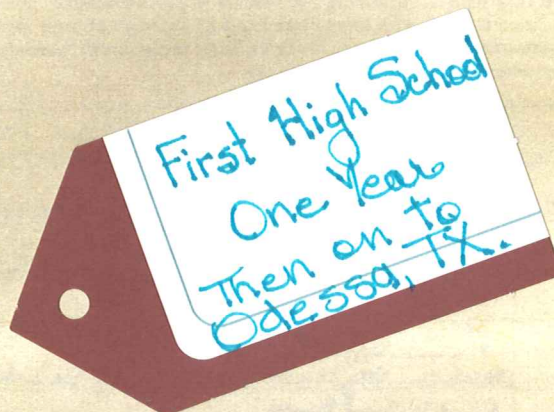 First High School
One Year
Then on to
Odessa, TX.